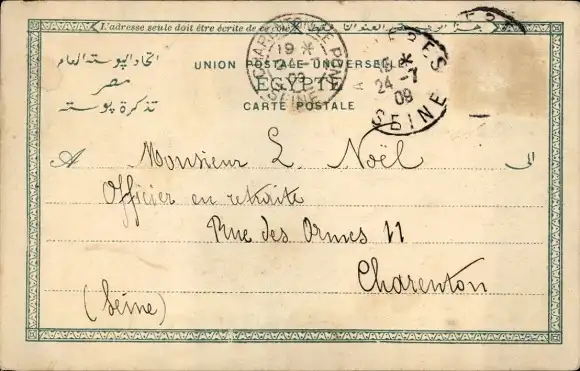 L'adresse seule doit être écrite de ce côté
اتحاد البوستة العام
مصر
تذكرة بوسته
UNION POSTALE UNIVERSELLE
EGYPTE
CARTE POSTALE
CHARENTON LE PONT
19 *
24
09
SEINE
19 *
24 -7
09
SEINE
A
الى
Monsieur L. Noël
Officier en retraite
Rue des Ormes 11
Charenton
(Seine)